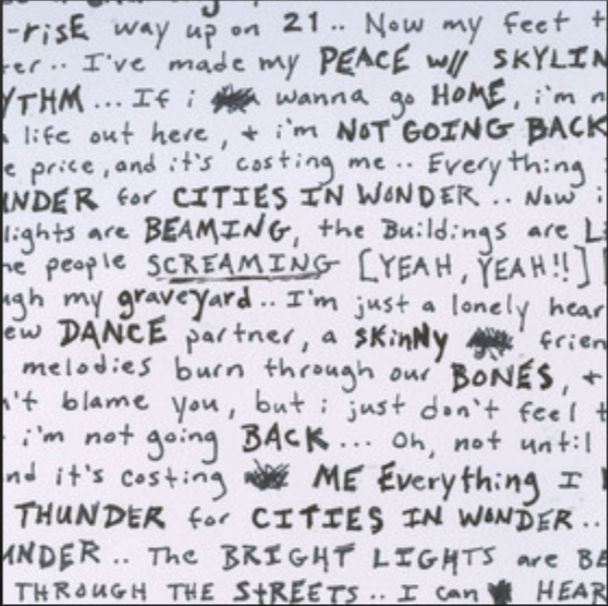 -risE way up on 21.. Now my feet t
er.. I've made my PEACE w// SKYLIN
YTHM... If i wanna go HOME, i'm n
life out here, + i'm NOT GOING BACK
e price, and it's costing me.. Everything
UNDER for CITIES IN WONDER.. Now i
lights are BEAMING, the Buildings are Li
he people SCREAMING [YEAH, YEAH!!]
ugh my graveyard.. I'm just a lonely hear
ew DANCE partner, a SKinNy frien
melodies burn through our BONES, +
n't blame you, but i just don't feel t
i'm not going BACK... Oh, not until
nd it's costing ME Everything I
THUNDER for CITIES IN WONDER..
UNDER.. The BRIGHT LIGHTS are BE
THROUGH THE StREETS.. I can HEAR